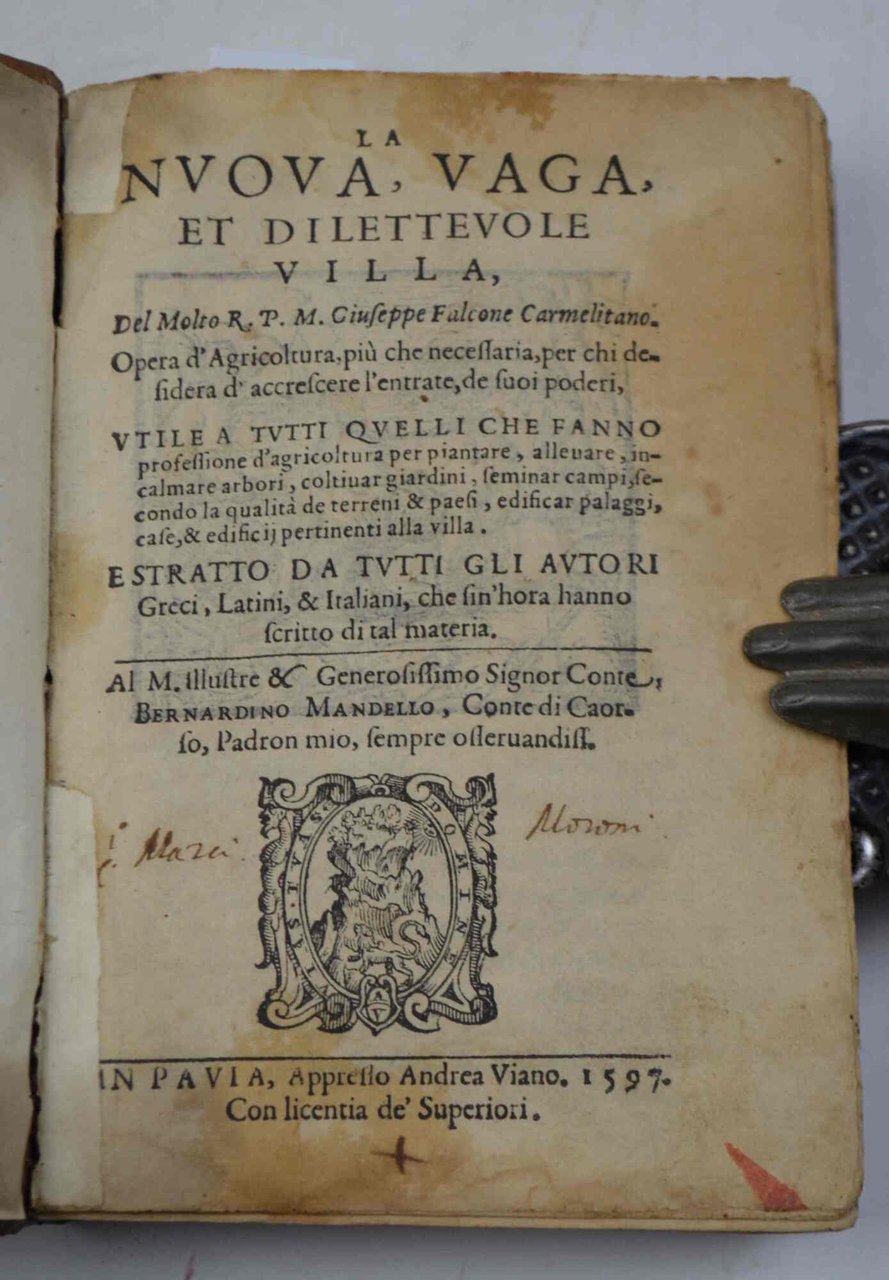 LA
NVOVA, VAGA,
ET DILETTEVOLE
VILLA,
Del Molto R. P. M. Giuſeppe Falcone Carmelitano.
Opera d'Agricoltura, più che neceſſaria, per chi de-
ſidera d' accreſcere l'entrate, de ſuoi poderi,
VTILE A TVTTI QVELLI CHE FANNO
profeſſione d'agricoltura per piantare, alleuare, in-
calmare arbori, coltiuar giardini, ſeminar campi, ſe-
condo la qualità de terreni & paeſi, edificar palaggi,
caſe, & edificij pertinenti alla villa.
ESTRATTO DA TVTTI GLI AVTORI
Greci, Latini, & Italiani, che ſin'hora hanno
ſcritto di tal materia.
Al M. illuſtre & Generoſiſſimo Signor Conte,
BERNARDINO MANDELLO, Conte di Caor-
ſo, Padron mio, ſempre oſſeruandiſſ.
Moroni
IN PAVIA, Appreſſo Andrea Viano. 1597.
Con licentia de' Superiori.